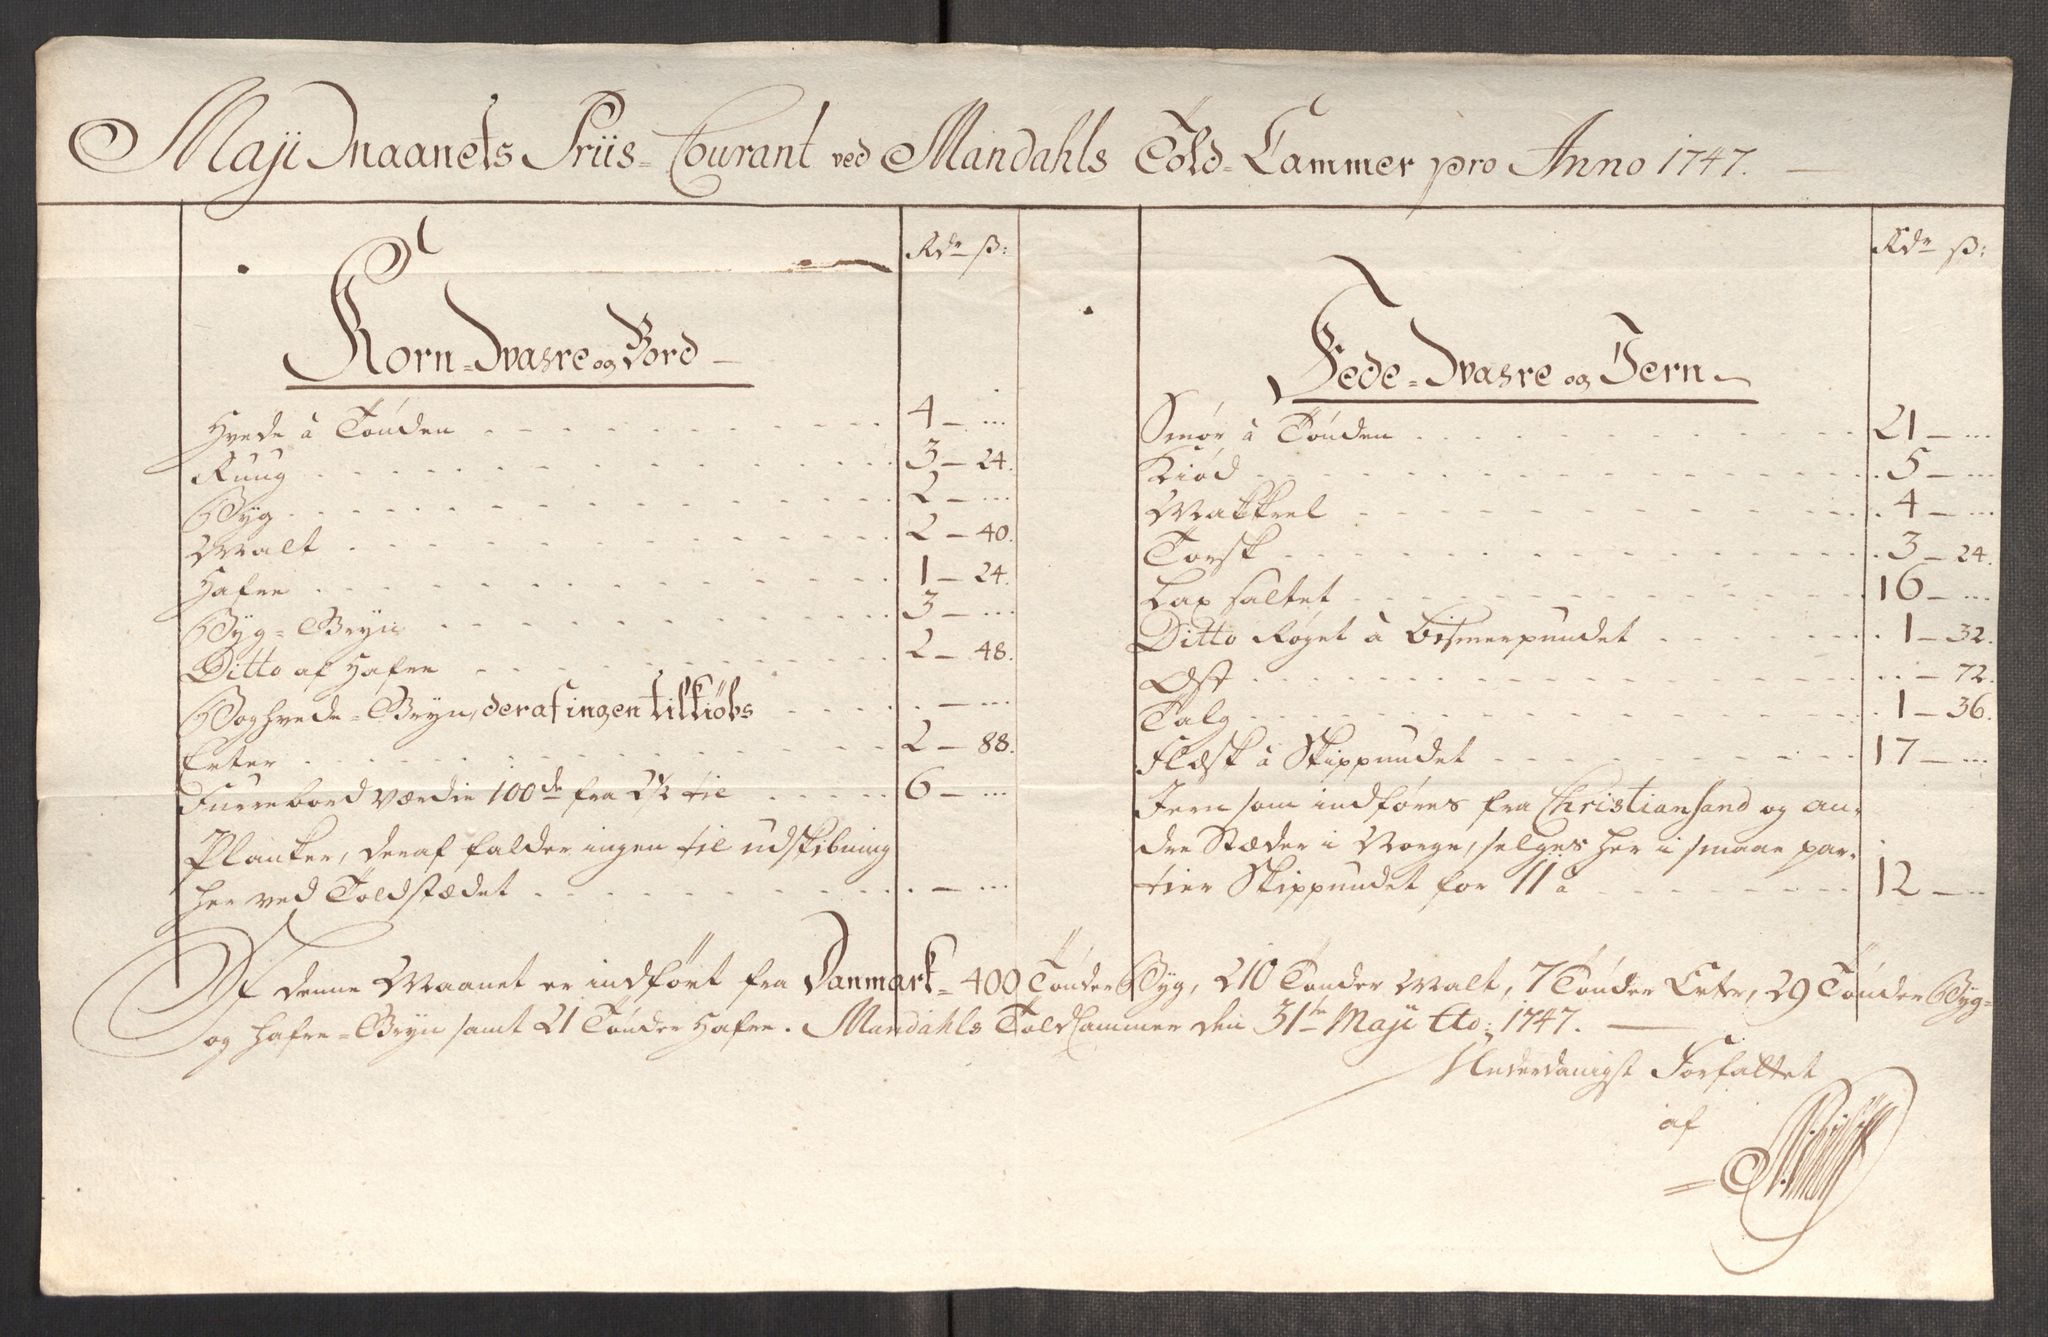 Maji Maanets Priis-Courant ved Mandahls Told-Cammer pro Anno 1747.
Rdr ß:
Korn-Waare og Bord
Hvede à Tønden 4 — ...
Rüüg 3 — 24.
Byg 2 — ...
Malt 2 — 40.
Hafre 1 — 24.
Byg-Gryn 3 — ...
Ditto af Hafre 2 — 48.
Boghvede-Gryn, deraf ingen til kiøbs . — ...
Erter 2 — 88.
Furrebord Værdie 100de fra 2½ til 6 — ...
Plancker, deraf falder ingen til udskibning
her ved Toldstædet . — ...
Rdr ß:
Fede-Waare og Jern
Smør à Tønden 21 — ...
Kiød 5 — ...
Makkrel 4 — ...
Torsk 3 — 24.
Lax saltet 16 — ...
Ditto Røget à Bismerpundet 1 — 32.
Ost .. — 72.
Talg 1 — 36.
Flæsk à Skippundet 17 — ...
Jern som indføres fra Christiansand og an-
dre Stæder i Norge, selges her i smaae par-
tier Skippundet for 11 à 12 — ...
Af denne Maanet er indført fra Danmark - 400 Tønder Byg, 210 Tønder Malt, 7 Tønder Erter, 29 Tønder Byg-
og Hafre-Gryn samt 21 Tønder Hafre. Mandahls Told Cammer den 31te Maji Ao: 1747.
Underdanigst Forfattet
af